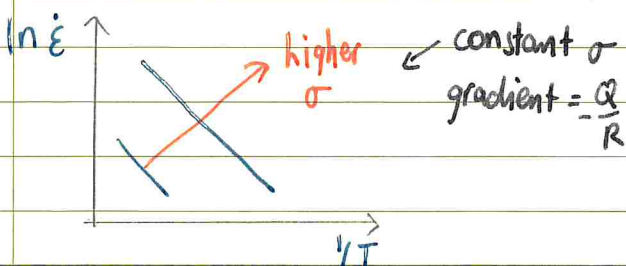 ln ε̇
higher
σ
constant σ
gradient = -Q/R
1/T